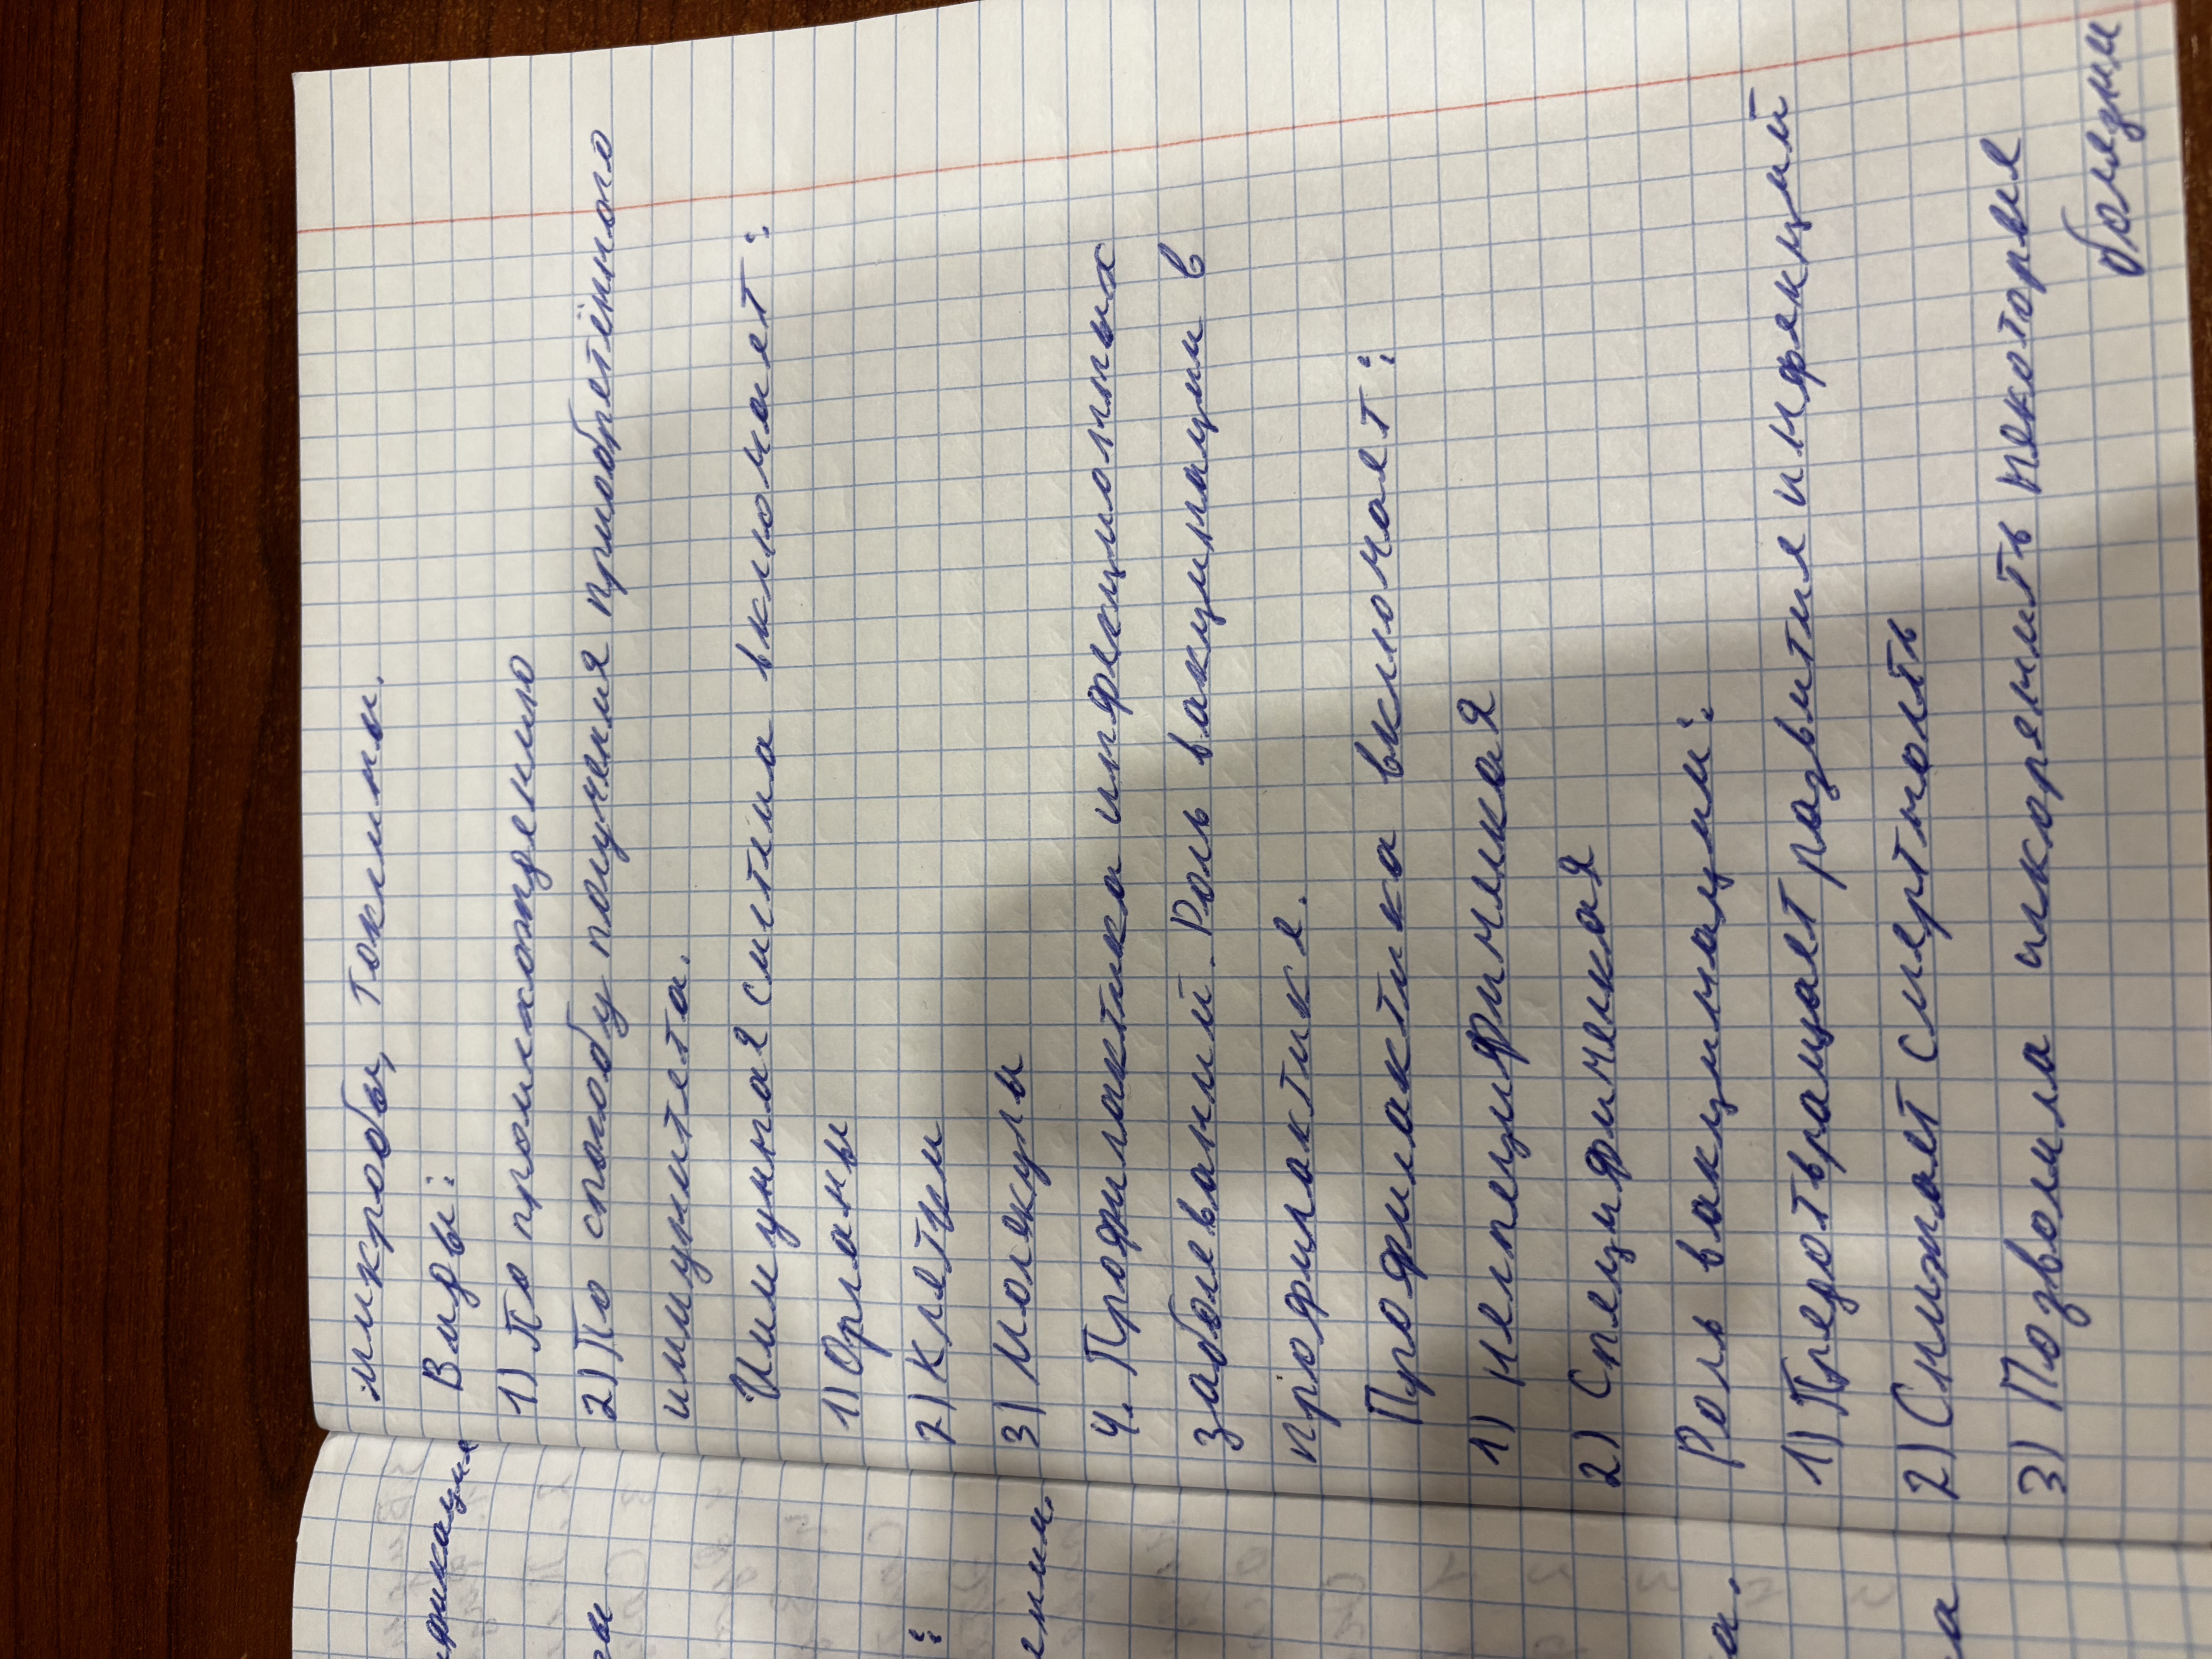 микробы, токсины.
Виды:
1) По происхождению
2) По способу получения приобретённого
иммунитета.
Имунная система включает:
1) Органы
2) Клетки
3) Молекулы
4. Профилактика инфекционных
заболеваний. Роль вакцинации в
профилактике.
Профилактика включает:
1) Неспецифическая
2) Специфическая
Роль вакцинации:
1) Предотвращает развитие инфекций
2) Снижает смертность
3) Позволила искоренить некоторые
болезни